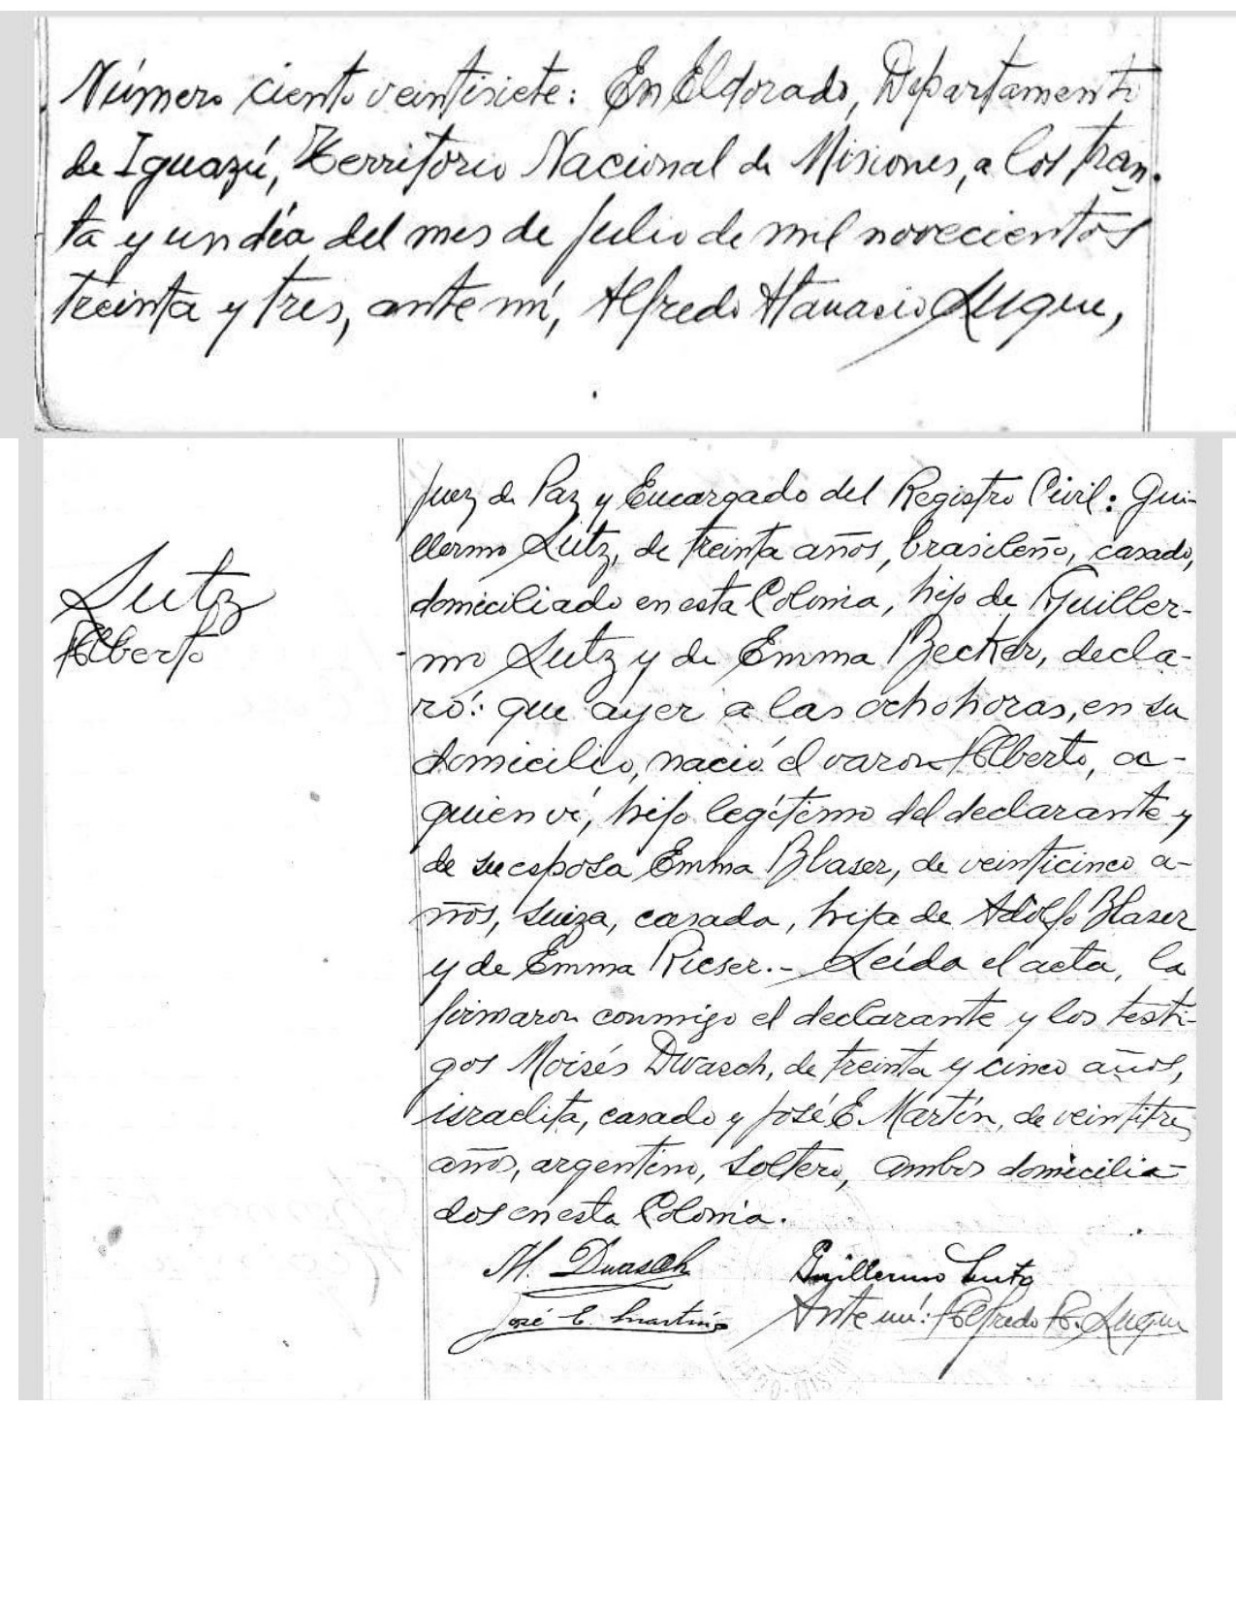 Número ciento veintisiete: En Eldorado, Departamento
de Iguazú, Territorio Nacional de Misiones, a los trein-
ta y un día del mes de julio de mil novecientos
treinta y tres, ante mí, Alfredo Atanacio Luque,
juez de Paz y Encargado del Registro Civil: Gui-
llermo Lutz, de treinta años, brasileño, casado,
domiciliado en esta Colonia, hijo de Guiller-
Lutz
Alberto
mo Lutz y de Emma Becker, decla-
ró: que ayer a las ocho horas, en su
domicilio, nació el varon Alberto, a
quien ví, hijo legítimo del declarante y
de su esposa Emma Blaser, de veinticinco a-
ños, suiza, casada, hija de Adolfo Blaser
y de Emma Rieser.- Leída el acta, la
firmaron conmigo el declarante y los testi-
gos Moisés Dwasch, de treinta y cinco años,
israelita, casado y José E. Martín, de veintitres
años, argentino, soltero, ambos domicilia-
dos en esta Colonia.
M. Dwasch Guillermo Lutz
José E. Martin Ante mí: Alfredo A. Luque